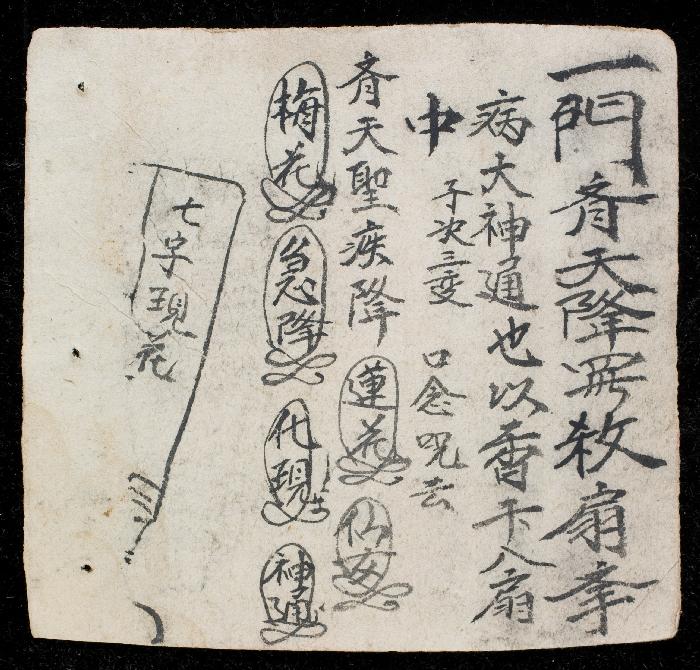 一門斉天降巫救扇奉
病大神通也以香卞八扇
中子次三变口念咒云
斉天聖疾降蓮花仙
梅花急降化現神通
七字現花